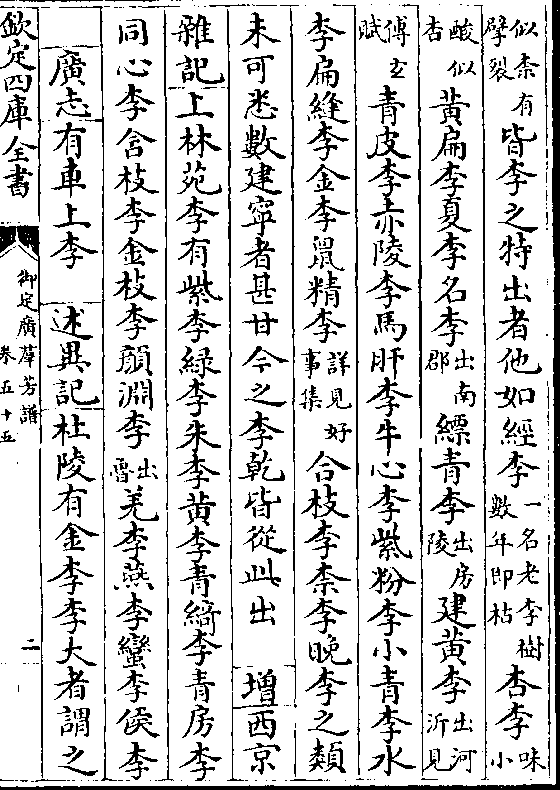 似柰有擘裂皆李之特出者他如經李一名老李樹數年即枯杏李味小
酸似杏黃扁李夏李名李出南郡縹青李出房陵建黃李出河沂見
傅玄賦青皮李赤陵李馬肝李牛心李紫粉李小青李水
李扁縫李金李鼠精李詳見好事集合枝李柰李晚李之類
未可悉數建寧者甚甘今之李乾皆從此出 增西京
雜記上林苑李有紫李綠李朱李黃李青綺李青房李
同心李含枝李金枝李顏淵李出魯羌李燕李蠻李侯李
廣志有車上李 述異記杜陵有金李李大者謂之
欽定四庫全書
御定廣羣芳譜
卷五十五
二